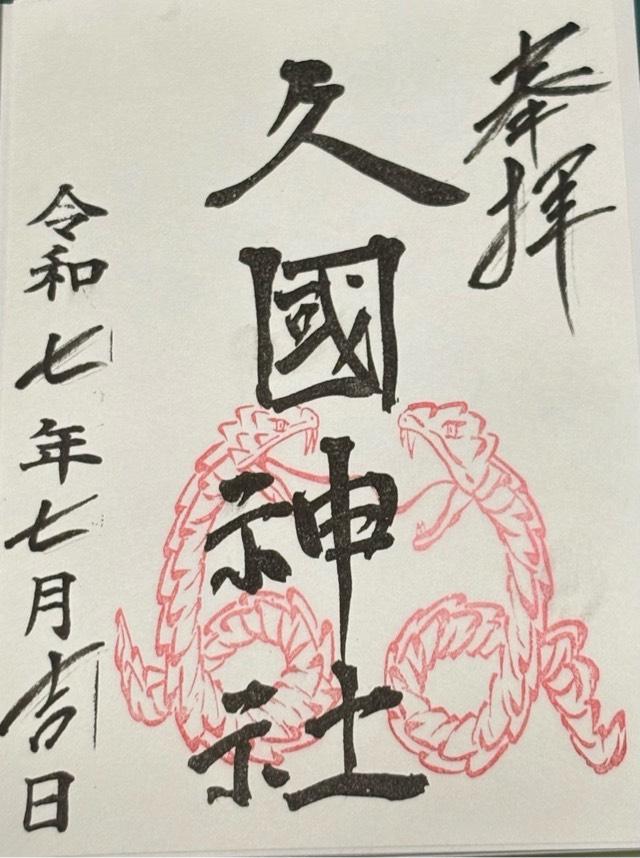 奉拝
久國神社
令和七年七月吉日